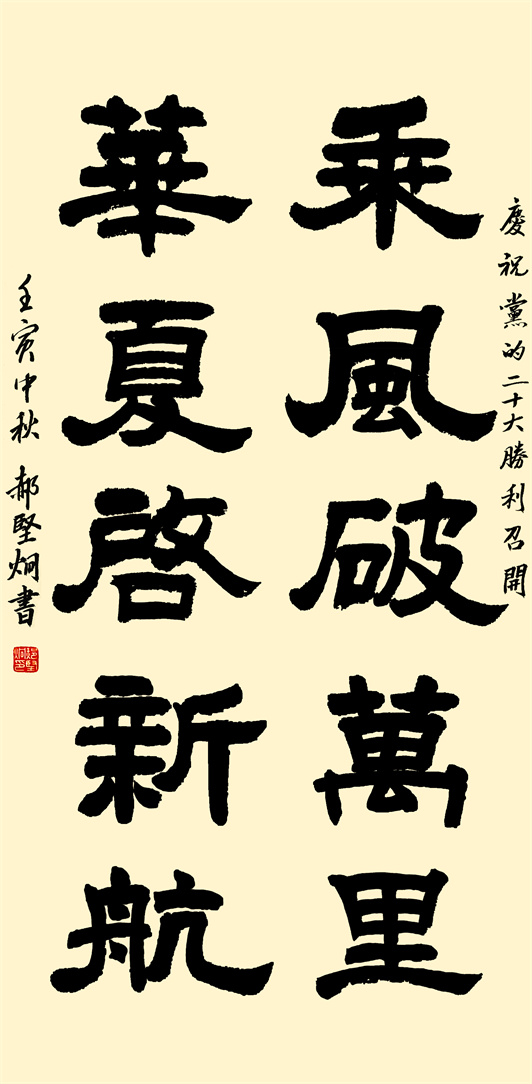 慶祝黨的二十大勝利召開
乘風破萬里
華夏啟新航
壬寅中秋 郝堅炯書